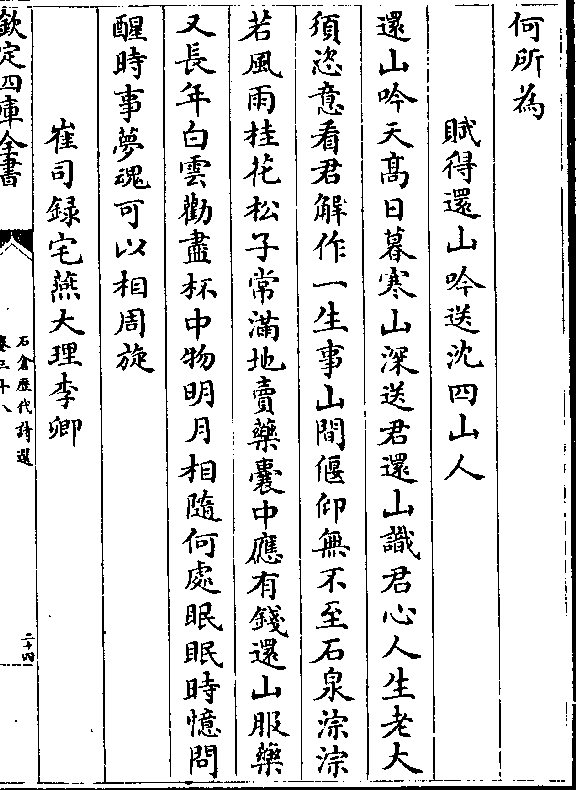 何所為
賦得還山吟送沈四山人
還山吟天髙日暮寒山深送君還山識君心人生老大
須恣意看君解作一生事山間偃仰無不至石泉淙淙
若風雨桂花松子常滿地賣藥囊中應有錢還山服藥
又長年白雲勸盡杯中物明月相隨何處眠眠時憶問
醒時事夢魂可以相周旋
崔司録宅燕大理李卿
欽定四庫全書
石倉歴代詩選
卷三十八
二十四